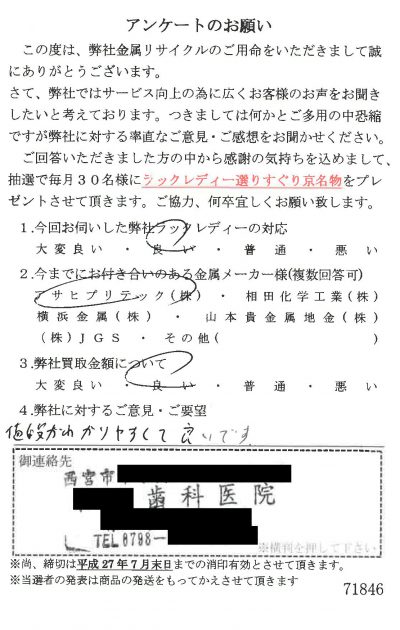 アンケートのお願い
この度は、弊社金属リサイクルのご用命をいただきまして誠
にありがとうございます。
さて、弊社ではサービス向上の為に広くお客様のお声をお聞き
したいと考えております。つきましては何かとご多用の中恐縮
ですが弊社に対する率直なご意見・ご感想をお聞かせください。
ご回答いただきました方の中から感謝の気持ちを込めまして、
抽選で毎月３０名様にシックレディー選りすぐり京名物をプレ
ゼントさせて頂きます。ご協力、何卒宜しくお願い致します。
１.今回お伺いした弊社ラックレディーの対応
大変良い・良い・普通・悪い
２.今までにお付き合いのある金属メーカー様(複数回答可)
アサヒプリテック(株)・相田化学工業(株)
横浜金属(株)・山本貴金属地金(株)
(株)ＪＧＳ・その他( )
３.弊社買取金額について
大変良い・良い・普通・悪い
４.弊社に対するご意見・ご要望
値段がわかりやすくて良いです
御連絡先
西宮市
歯科医院
TEL 0798-
※横判を押して下さい
※尚、締切は平成27年7月末日までの消印有効とさせて頂きます。
※当選者の発表は商品の発送をもってかえさせて頂きます
71846